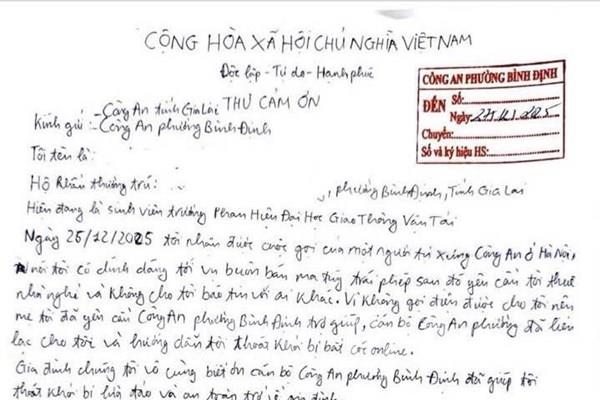 CỘNG HÒA XÃ HỘI CHỦ NGHĨA VIỆT NAM
Độc lập - Tự do - Hạnh phúc
THƯ CẢM ƠN
Kính gửi: - Công An tỉnh Gia Lai
- Công An phường Bình Định
CÔNG AN PHƯỜNG BÌNH ĐỊNH
ĐẾN Số:
Ngày 27/12/2025
Chuyển:
Số và ký hiệu HS:
Tôi tên là:
Hộ khẩu thường trú: , phường Bình Định, Tỉnh Gia Lai
Hiện đang là sinh viên trường Phan Hiệu Đại Học Giao Thông Vận Tải
Ngày 25/12/2025 tôi nhận được cuộc gọi của một người tự xưng Công An ở Hà Nội,
nói tôi có dính dáng tới vụ buôn bán ma túy trái phép sau đó yêu cầu tôi thuê
nhà nghỉ và không cho tôi báo tin với ai khác. Vì không gọi điện được cho tôi nên
mẹ tôi đã yêu cầu Công An phường Bình Định trợ giúp, cán bộ Công An phường đã liên
lạc cho tôi và hướng dẫn tôi thoát khỏi bị bắt cóc online.
Gia đình chúng tôi vô cùng biết ơn cán bộ Công An phường Bình Định đã giúp tôi
thoát khỏi bị lừa đảo và an toàn trở về gia đình.